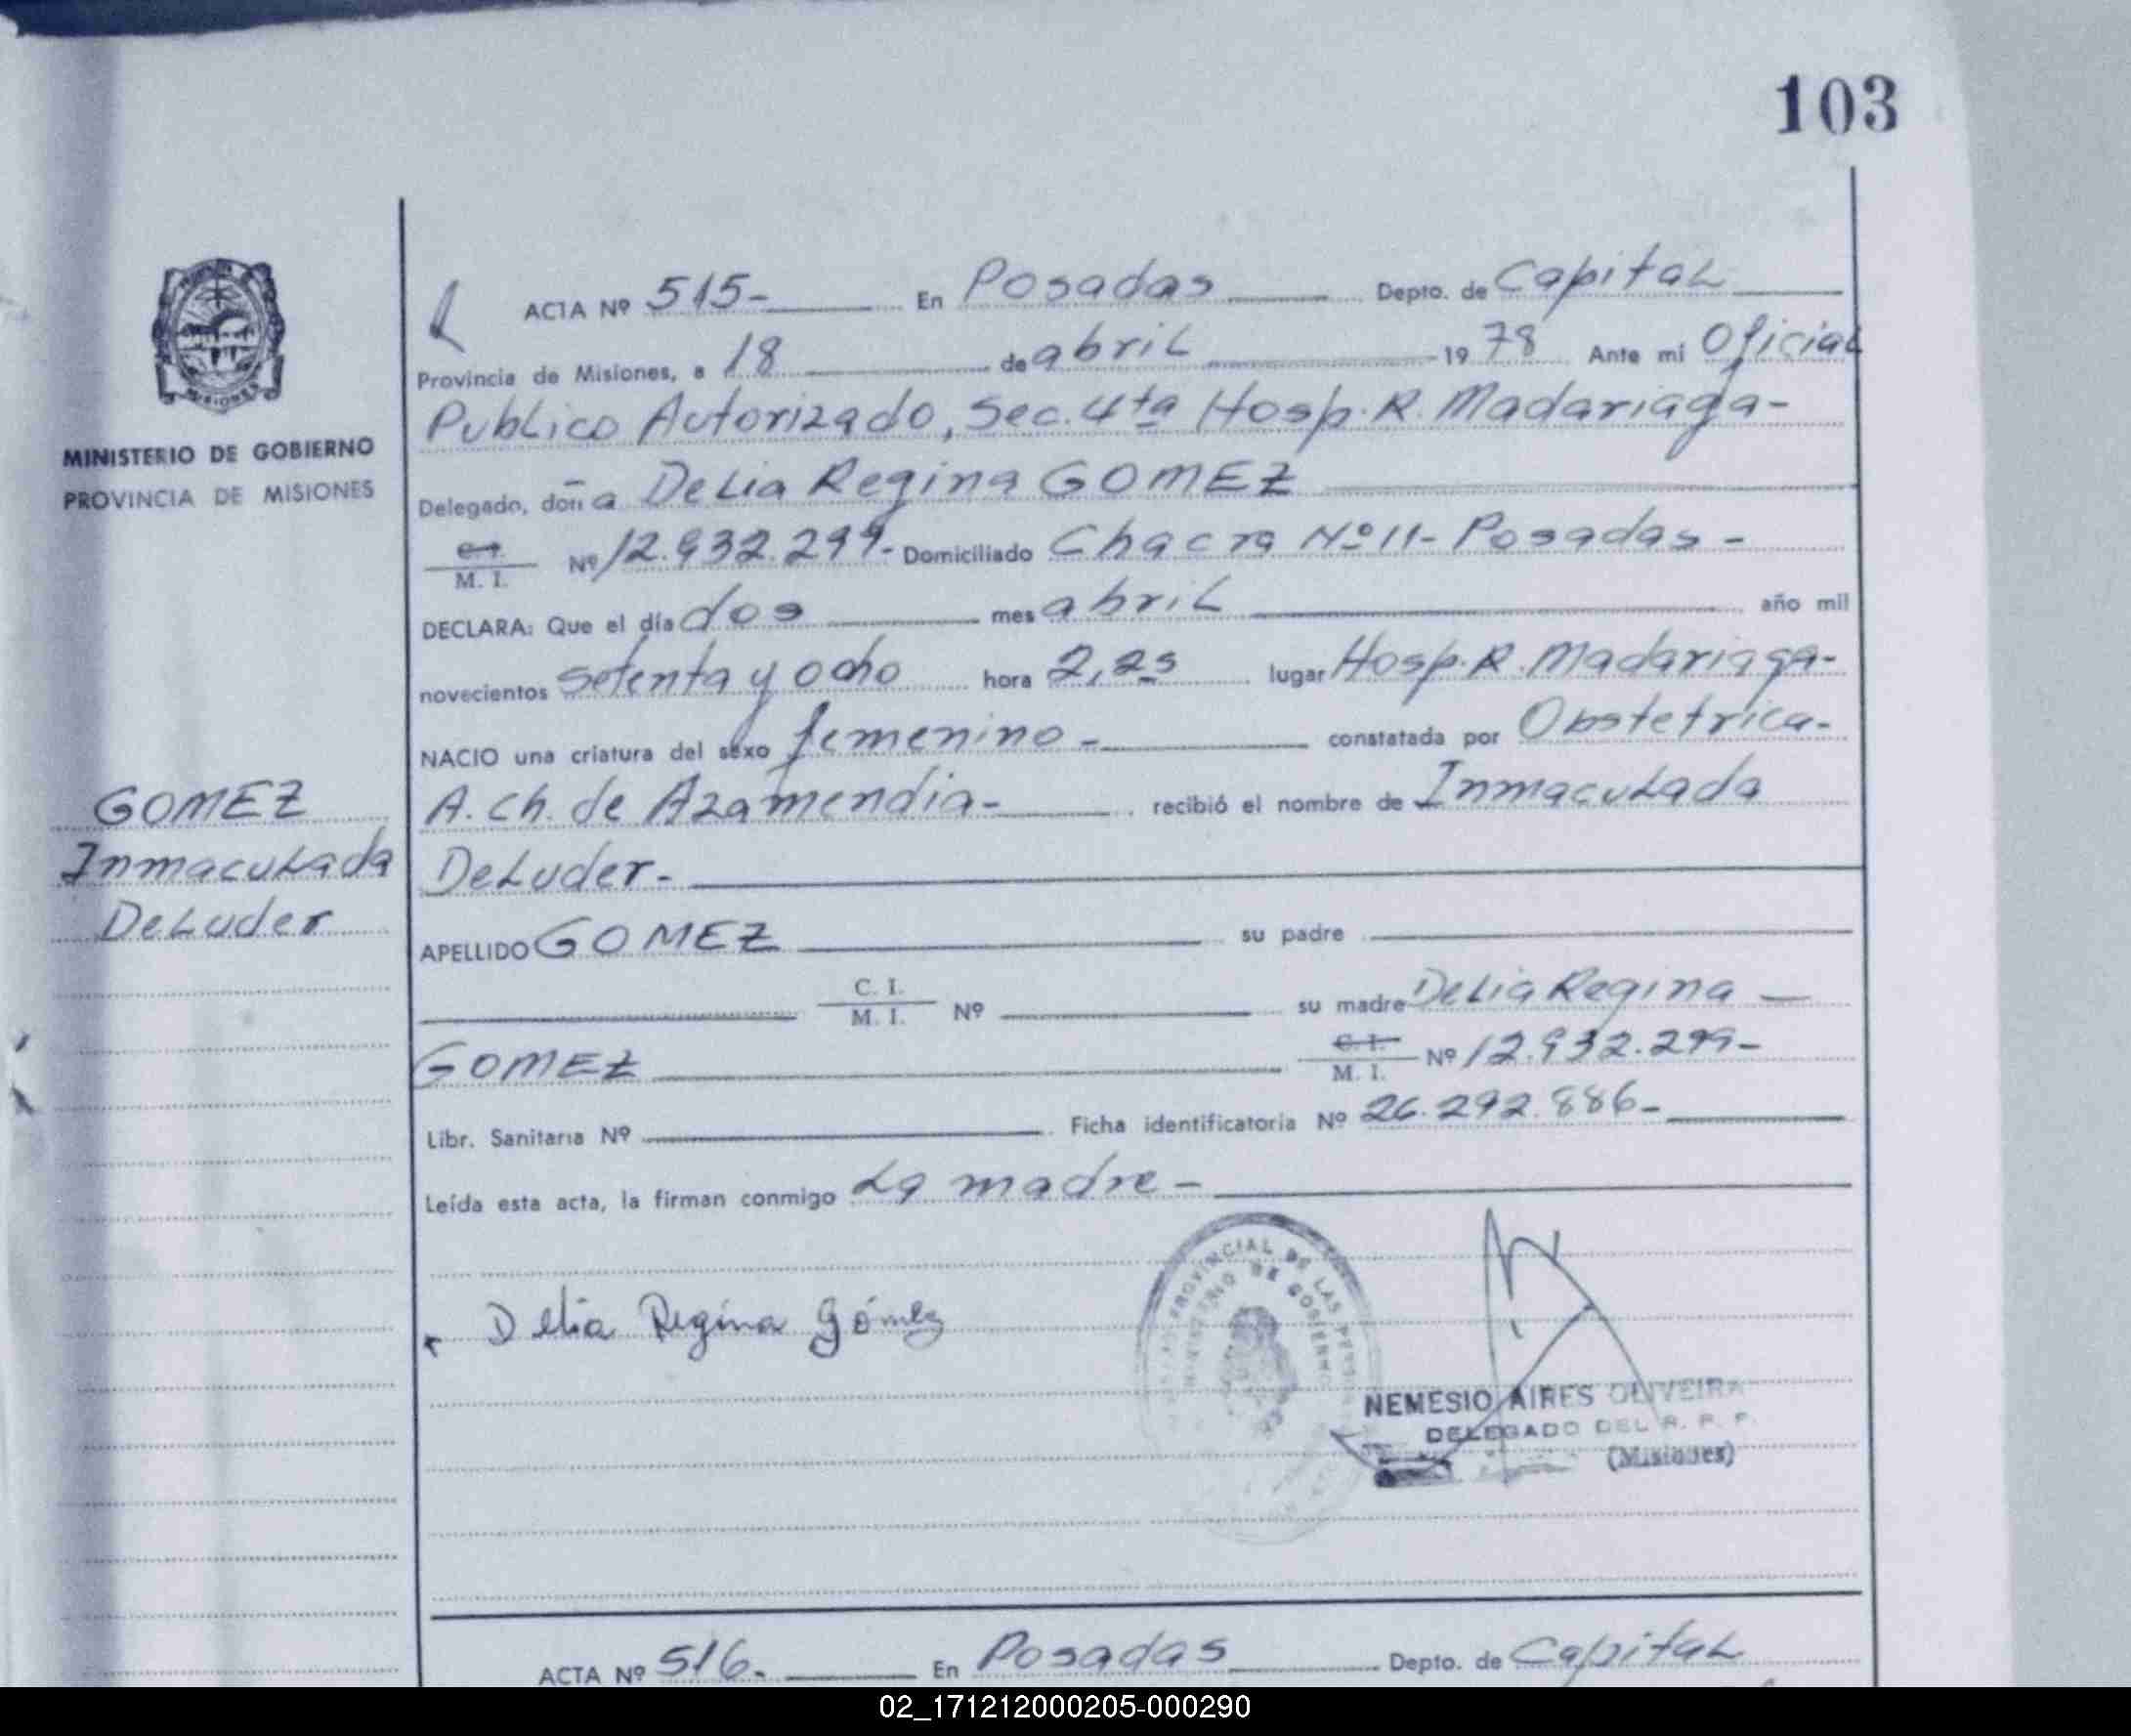 103
ACTA Nº 515- En Posadas Depto. de Capital
Provincia de Misiones, a 18 de abril 1978 Ante mi Oficial
Publico Autorizado, Sec. 4ta Hosp. R. Madariaga-
MINISTERIO DE GOBIERNO
PROVINCIA DE MISIONES
Delegado, doña Delia Regina GOMEZ
C. I.
M. I. Nº 12.932.299- Domiciliado Chacra Nº 11- Posadas -
DECLARA: Que el día dos mes abril año mil
novecientos setenta y ocho hora 2,25 lugar Hosp. R. Madariaga-
NACIO una criatura del sexo femenino - constatada por Obstetrica-
A. Ch. de Azamendia- recibió el nombre de Inmaculada
Deluder-
GOMEZ
Inmaculada
Deluder
APELLIDO GOMEZ su padre
C. I.
M. I. Nº su madre Delia Regina
GOMEZ C. I.
M. I. Nº 12.932.299-
Libr. Sanitaria Nº Ficha identificatoria Nº 26.292.886-
Leída esta acta, la firman conmigo La madre-
Delia Regina Gómez
PROVINCIAL DE LAS
MINISTERIO DE GOBIERNO
NEMESIO AIRES OLIVEIRA
DELEGADO DEL R. P. P.
(Misiones)
ACTA Nº 516. En Posadas Depto. de Capital
02_171212000205-000290